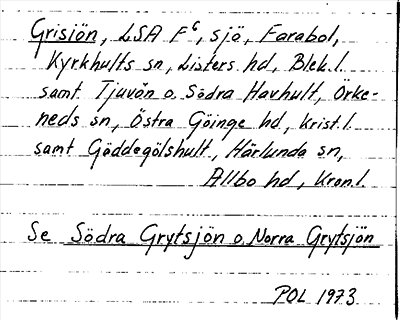 Grisjön, LSA F⁶, sjö, Farabol,
Kyrkhults sn, Listers hd, Blek.l.
samt Tjuvön o. Södra Havhult, Örke-
neds sn, Östra Göinge hd, Krist.l.
samt Gäddegölshult, Härlunda sn,
Allbo hd, Kron.l.
Se Södra Grytsjön o. Norra Grytsjön
POL 1973